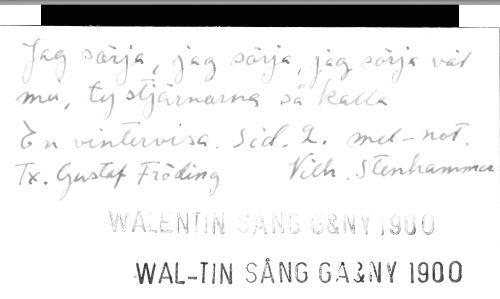 Jag sörja, jag sörja, jag sörja väl
mu, ty stjärnorna så kalla
En vintervisa. Sid. 2. mel-not.
Tx. Gustaf Fröding Vilh. Stenhammar
WALENTIN SÅNG G&NY 1900
WAL-TIN SÅNG GA&NY 1900